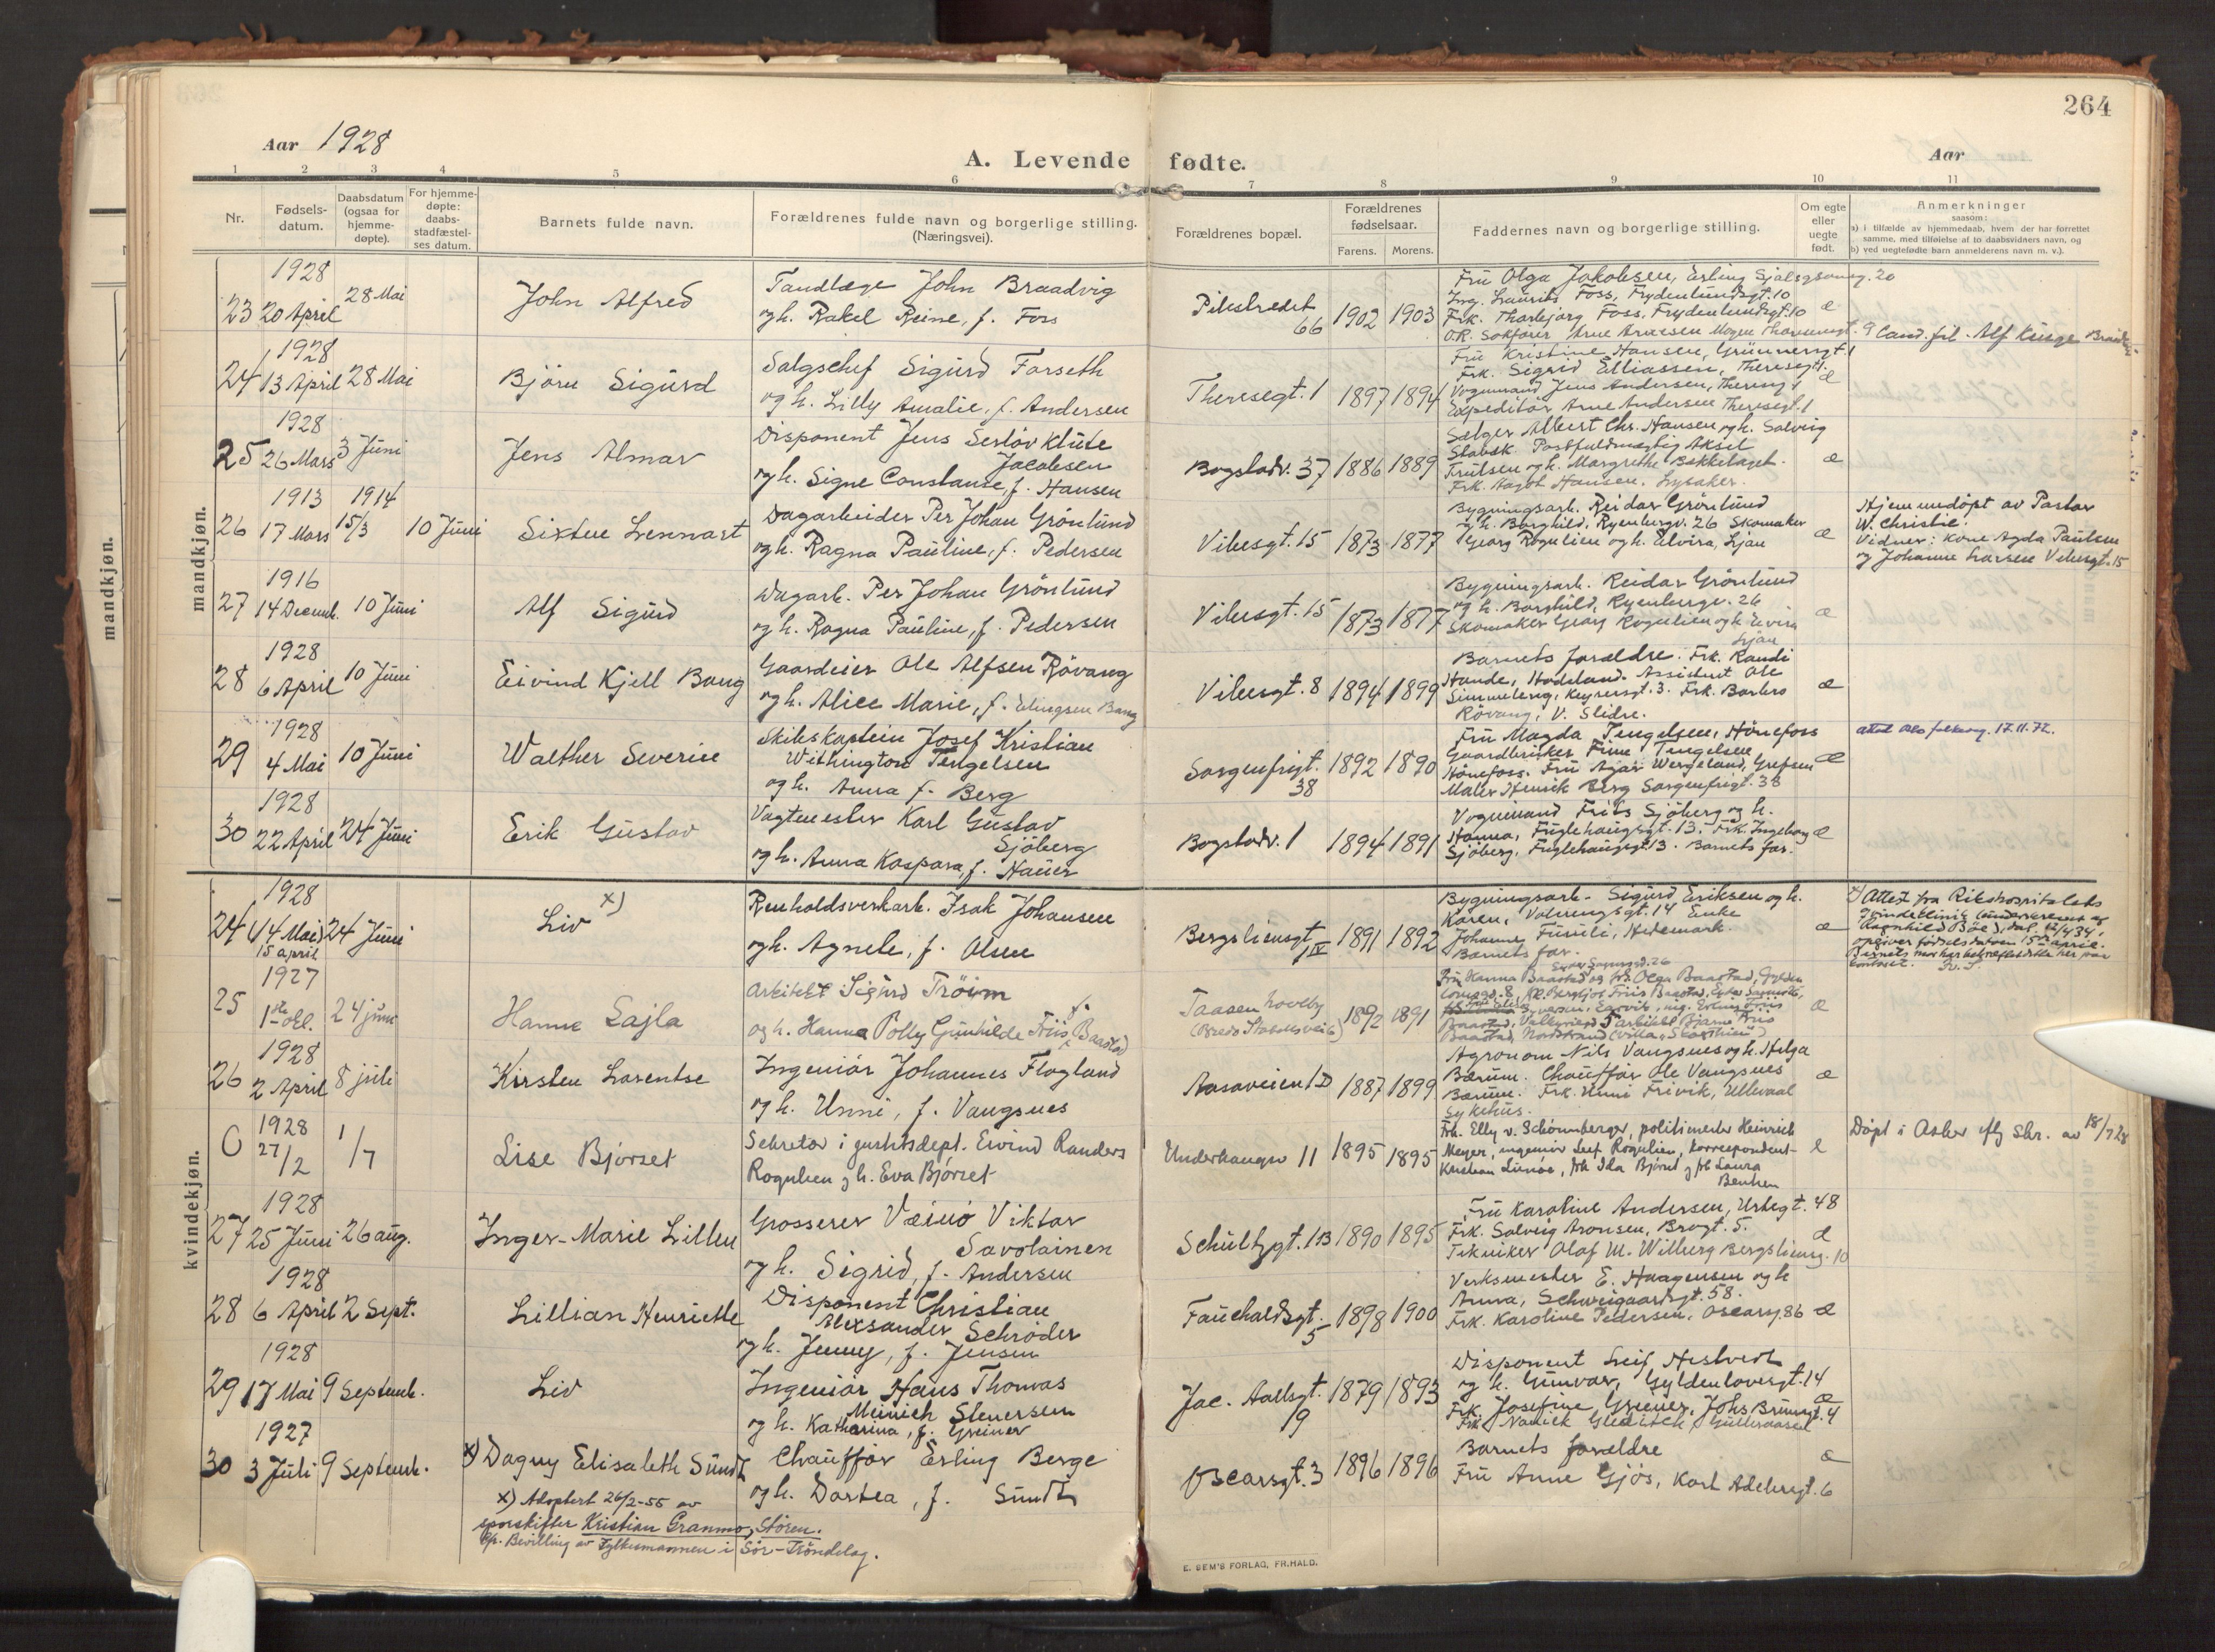 264
Aar 1928
A. Levende fødte.
Aar
1 2 3 4 5 6 7 8 9 10 11
Nr.
Fødsels-
datum.
Daabsdatum
(ogsaa for
hjemme-
døpte).
For hjemme-
døpte:
daabs-
stadfæstel-
ses datum.
Barnets fulde navn.
Forældrenes fulde navn og borgerlige stilling.
(Næringsvei).
Forældrenes bopæl.
Forældrenes
fødselsaar.
Farens. Morens.
Faddernes navn og borgerlige stilling.
Om egte
eller
uegte
født.
Anmerkninger
saasom:
a) i tilfælde av hjemmedaab, hvem der har forrettet
samme, med tilføielse af to daabsvidners navn, og
b) ved uegtefødte barn anmelderens navn m. v.).
mandkjøn.
mandkjøn.
1928
23 20 April 28 Mai
John Alfred
Tandlæge John Braadvig
og h. Rakel Reine, f. Foss
Pilestrædet
66
1902 1903
Fru Olga Jakobsen, Erling Sjalgsonsg. 20
Ing. Laurits Foss, Frydenlundsgt. 10
Frk. Thorbjørg Foss, Frydenlundsgt. 10
æ
O.R. Sakfører Arne Arnesen Magnu
Cand. fil. Alf
1928
24 13 April 28 Mai
Bjørn Sigurd
Salgschef Sigurd Forseth
og h. Lilly Amalie, f. Andersen
Theresegt. 1
1897 1894
Fru Kristine Hansen, Grünnersgt. 1
Frk. Sigrid Elliassen, Theresegt.
Vognmand Jens Andersen, Theresegt 1
æ
Expeditør Arne Andersen Theresegt. 1
1928
25 26 Mars 3 Juni
Jens Almar
Disponent Jens Serløv Klute
Jacobsen
og h. Signe Constanse, f. Hansen
Bogstadv. 37
1886 1889
Sælger Albert Chr. Hansen og h. Solveig
Stabsk Postfuldmægtig Aksel
Trulsen og h. Margrethe Bekkelaget.
æ
Frk. Aagot Hansen. Lysaker.
1913 1914
26 17 Mars 15/3 10 Juni
Sixten Lennart
Dagarbeider Per Johan Grönlund
og h. Ragna Pauline, f. Pedersen
Vibesgt. 15
1873 1877
Bygningsarb. Reidar Grönlund
og h. Borghild, Ryenbergv. 26 Skomaker
Georg Rognlien og h. Elvira, Ljan
æ
Hjemmedøpt av Pastor
W. Christie.
Vidner: Kone Agda Paulsen
og Johanne Larsen Vibesgt. 15
1916
27 14 Decemb. 10 Juni
Alf Sigurd
Dagarb. Per Johan Grönlund
og h. Ragna Pauline, f. Pedersen
Vibesgt. 15
1873 1877
Bygningsarb. Reidar Grönlund
og h. Borghild, Ryenbergv. 26
Skomaker Georg Rognlien og h. Elvira
Ljan
æ
1928
28 6 April 10 Juni
Eivind Kjell Bang
Gaardeier Ole Alfsen Rövang
og h. Alice Marie, f. Elingsen Bang
Vibesgt. 8
1894 1899
Barnets forældre. Frk. Randi
Hande, Hadeland. Assistent Ole
Simmeleng, Keysersgt. 3. Frk. Barbro
Rövang, V. Slidre.
æ
1928
29 4 Mai 10 Juni
Walther Severin
Skibskaptein Josef Kristian
Withington Tengelsen
og h. Anna f. Berg
Sorgenfrigt.
38
1892 1890
Fru Magda Tengelsen, Hönefoss
Gaardbruker Finn Tengelsen
Hönefoss. Fru Agar Wergeland, Grefsen
Maler Henrik Berg Sorgenfrigt. 38
æ
17.11.72.
1928
30 22 April 24 Juni
Erik Gustav
Vagtmester Karl Gustav
Sjöberg
og h. Anna Kaspara, f. Hauer
Bogstadv. 1
1894 1891
Vognmand Frits Sjöberg og h.
Hanna, Fuglehaugsgt. 13. Frk. Ingeborg
Sjöberg, Fuglehaugsgt 13. Barnets far.
æ
kvindekjøn.
1928
24 (14 Mai) 24 Juni
15 april
Liv x)
Renholdsverkarb. Isak Johansen
og h. Agnete, f. Olsen
Bergsliensgt
IV
1891 1892
Bygningsarb. Sigurd Eriksen og h.
Karen, Vaalerengsgt. 14 Enke
Johanne Furuli, Hedemark.
Barnets far.
æ
x) Attest fra Rikshospitalets
kvindeklinik (underskrevet av
Ragnhild Böe), dat. 12/4 34,
opgiver fødselsdatoen 15de april.
Barnets mor har bekræftet dette her paa
kontoret.
1927
25 1ste okt. 24 juni
Hanne Lajla
Arkitekt Sigurd Tröim
og h. Hanna Polly Gunhilde Friis f. Baastad
Taasen haveby
1892 1891
æ
1928
26 2 April 8 juli
Kirsten Lorentse
Ingeniør Johannes Flogland
og h. Unni, f. Vangsnes
Aasaveien 1 D
1887 1899
Agronom Nils Vangsnes og h. Helga
Bærum. Chauffør Ole Vangsnes
Bærum. Frk. Unni Frivik, Ullevaal
Sykehus.
æ
1928
0 27/2 1/7
Lise Bjørset
Sekretær i justisdept. Eivind Randers
Rognlien og h. Eva Bjørset
Underhaugsv 11
1895 1895
Frk. Elly v. Schønnberger, politimester Heinrich
Meyer, ingeniør Leif Rognlien, korrespondent
Kristian Lunøe, frk Ida Bjørset og frk Laura
Benken
Døpt i Asker iflg skr. av 18/7 28
1928
27 25 Juni 26 aug.
Inger-Marie Lillen
Grosserer Väinö Viktor
Savolainen
og h. Sigrid, f. Andersen
Schultzgt. 1 B
1890 1895
Fru Karoline Andersen, Urtegt. 48
Frk. Solveig Aronsen, Brogt. 5.
Tekniker Olaf M. Wilberg Bergslieng. 10
æ
1928
28 6 April 2 Sept.
Lillian Henriette
Disponent Christian
Alexsander Schrøder
og h. Jenny, f. Jensen
Fauchaldsgt.
5
1898 1900
Verksmester E. Haagensen og h
Anna, Schweigaardsgt. 58.
Frk. Karoline Pedersen, Oscarsg. 86
æ
1928
29 17 Mai 9 Septemb.
Liv
Ingeniör Hans Thomas
Meinich Stenersen
og h. Katharina, f. Greiner
Jac. Aallsgt.
9
1879 1893
Disponent Leif Hestvedt
og h. Gunvar, Gyldenlovesgt. 14
Frk. Josefine Greiner, Johs Brunsgt. 4
æ
1927
30 3 Juli 9 Septemb.
x) Dagny Elisabeth Sundt
Chauffør Erling Berge
og h. Dortea, f. Sundt
Oscarsgt. 3
1896 1896
Barnets forældre
Fru Anne Gjös, Kort Adelersgt. 6
æ
x) Adoptert 26/2-55 av
sporskifter Kristian Granmo, Støren.
Bevilling av Fylkesmannen i Sør-Trøndelag.
E. SEM'S FORLAG, FR.HALD.